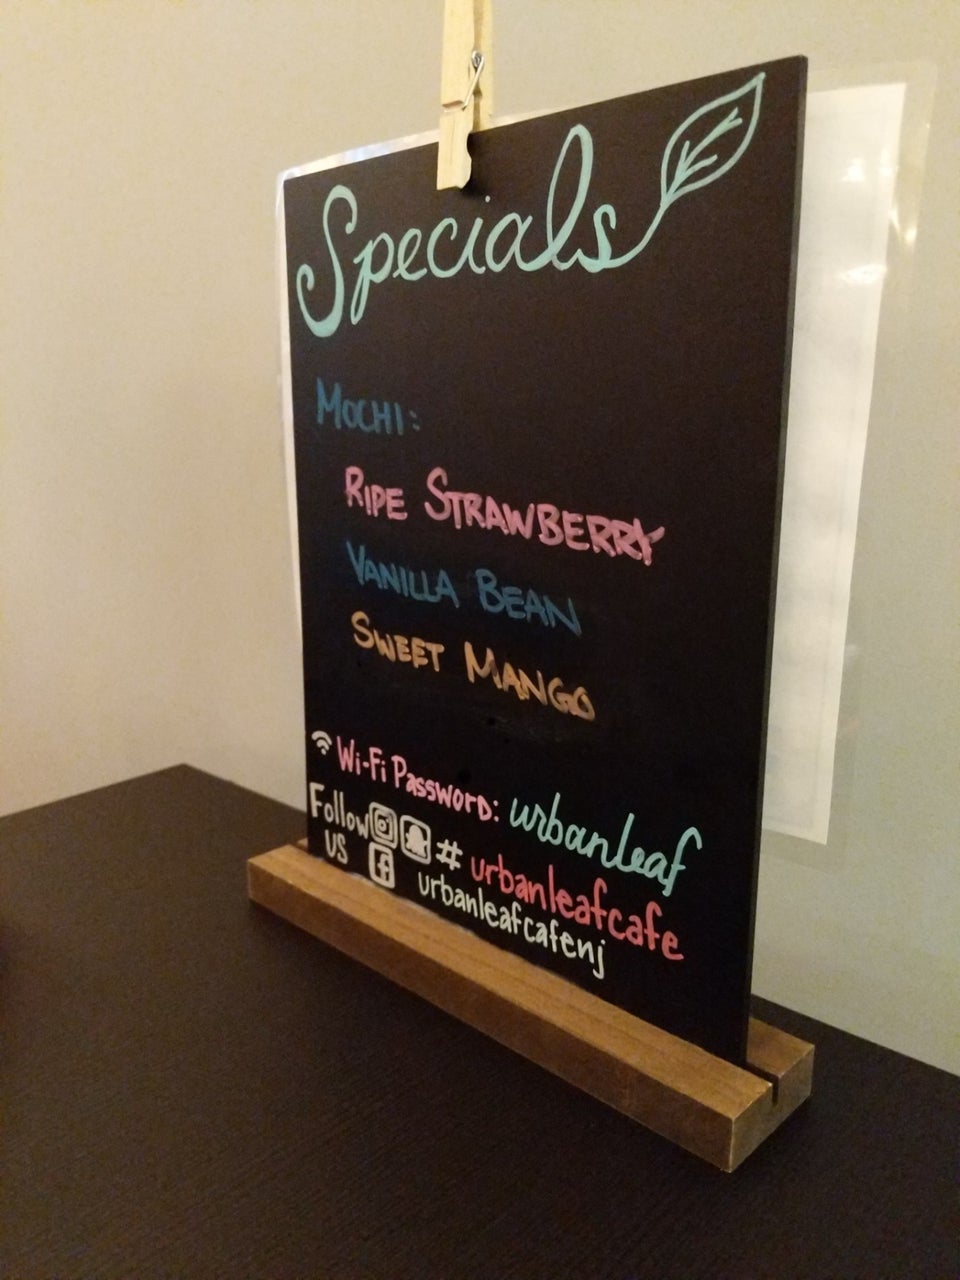 Specials
MOCHI:
RIPE STRAWBERRY
VANILLA BEAN
SWEET MANGO
Wi-Fi Password: urbanleaf
Follow # urbanleafcafe
us urbanleafcafenj